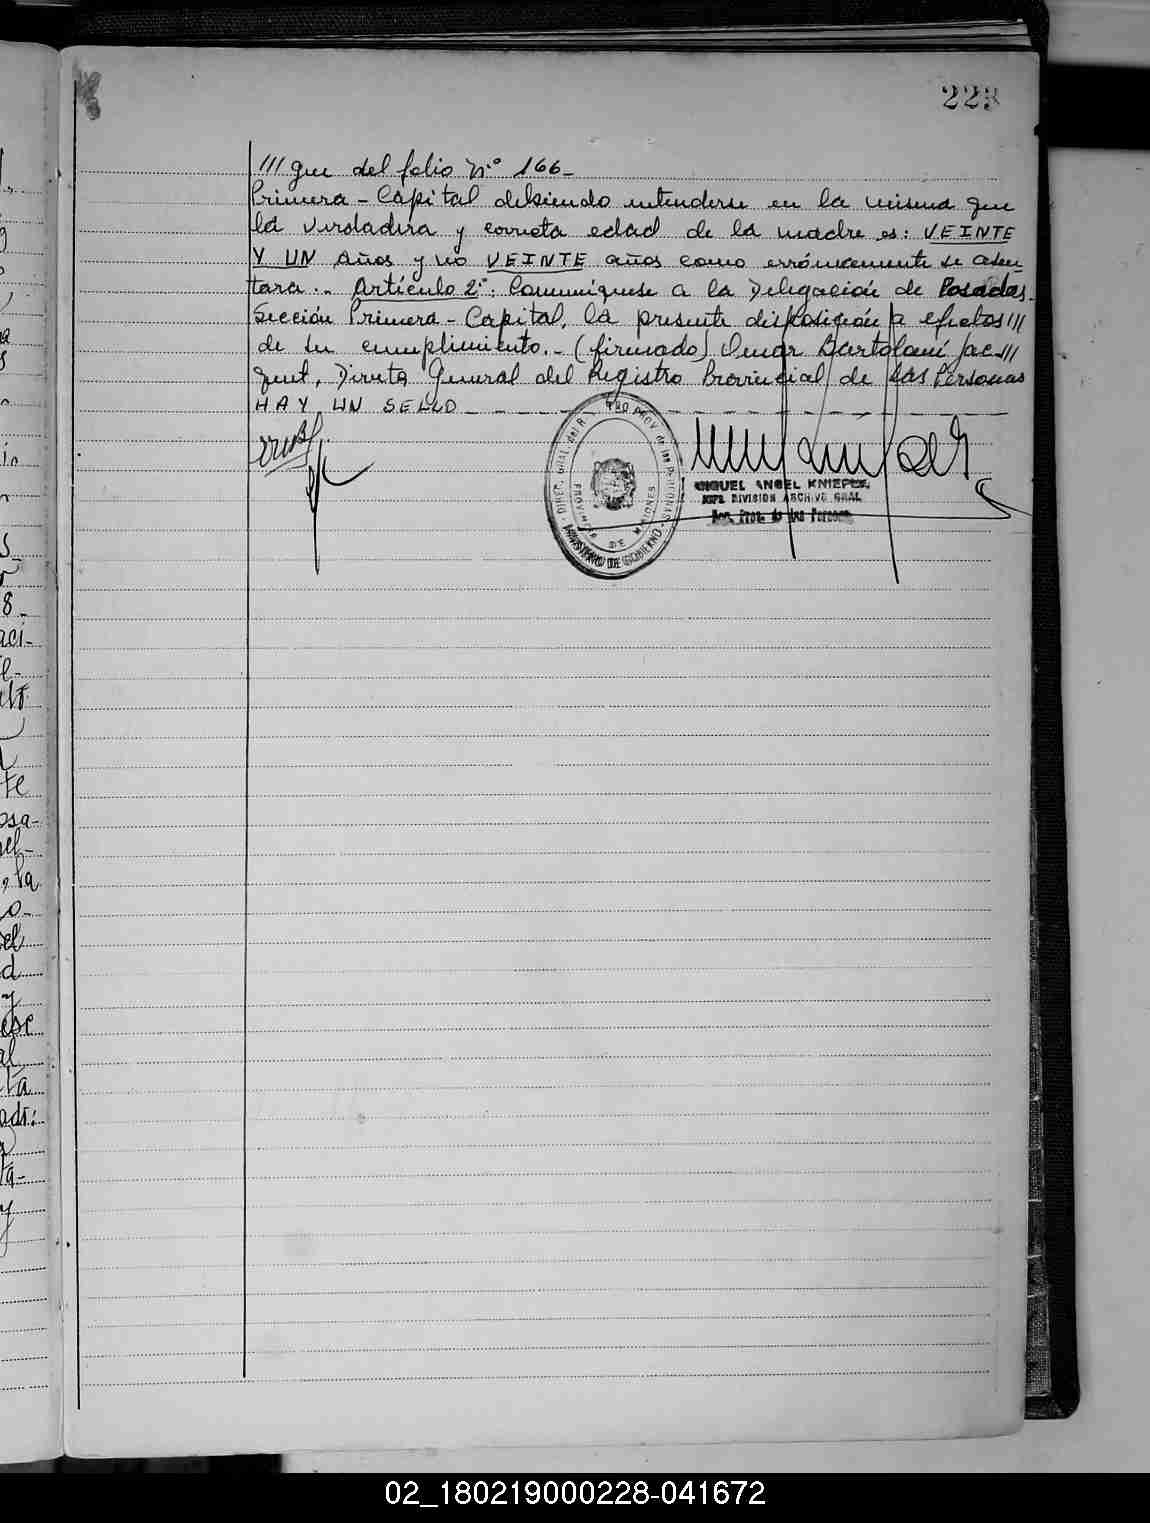 223
/// que del folio Nº 166_
Primera - Capital debiendo entenderse en la misma que
la verdadera y correcta edad de la madre es: VEINTE
Y UN años y no VEINTE años como erróneamente se asen-
tara.- Artículo 2º: Comuníquese a la Delegación de Posadas
Sección Primera - Capital, la presente disposición a efectos ///
de su cumplimiento.- (firmado) Omar Bartolomé Jac ///
quet, Director General del Registro Provincial de las Personas
HAY UN SELLO
DIREC. GRAL. del R. PROV. de las PERSONAS
PROVINCIA DE MISIONES
MINISTERIO DE GOBIERNO
MIGUEL ANGEL
JEFE DIVISION ARCHIVO GRAL
Reg. Prov. de las Personas
8_
aci-
te
osa-
el-
, la
o-
el
d
y
ese
al
ta
ta-
y
02_180219000228-041672